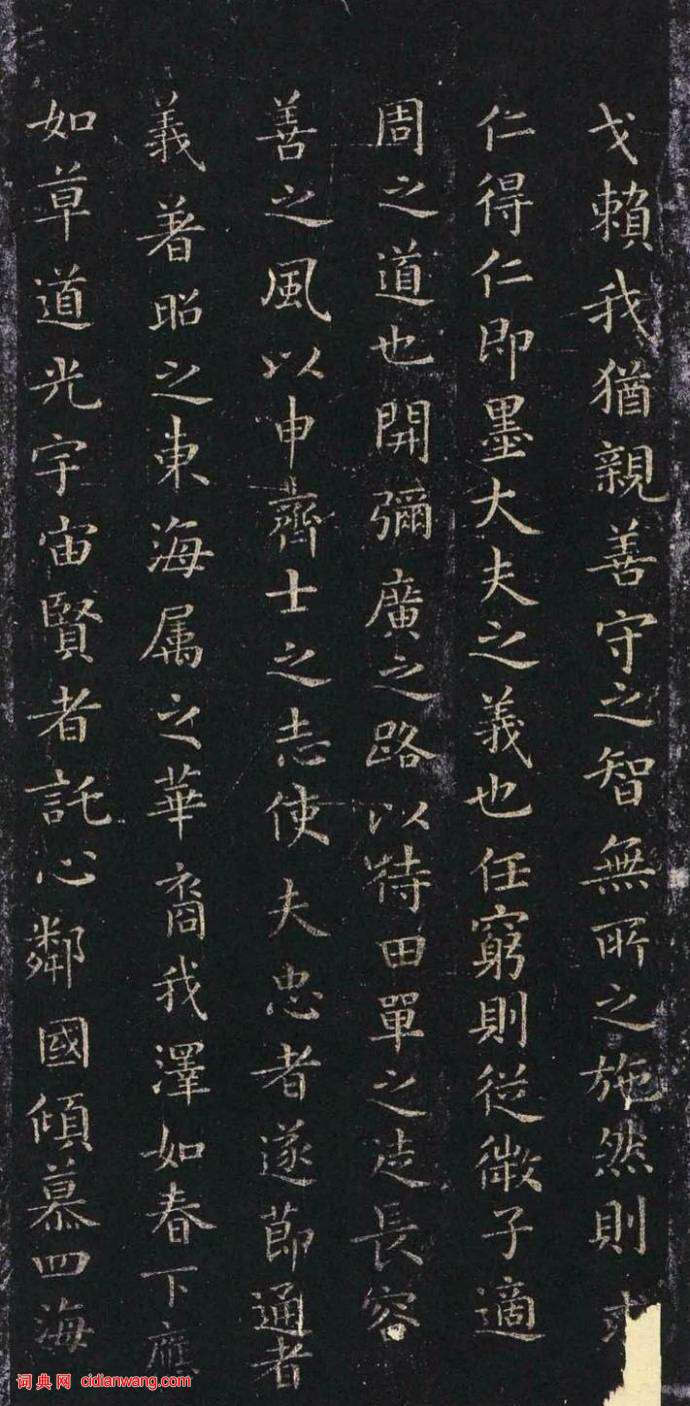 戈賴我猶親善守之智無所之施然則求
仁得仁即墨大夫之義也任窮則從微子適
周之道也開彌廣之路以待田單之徒長容
善之風以申齊士之志使夫忠者遂節通者
義著昭之東海属之華裔我澤如春下應
如草道光宇宙賢者託心鄰國傾慕四海
词典网 cidianwang.com